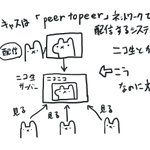 キャスは「peer to peer」ネットワークで
配信するシステ
配信
ニコ生とか
ニコ生
サーバー
ニコニコ
こう
なにに
見る
見る
見る